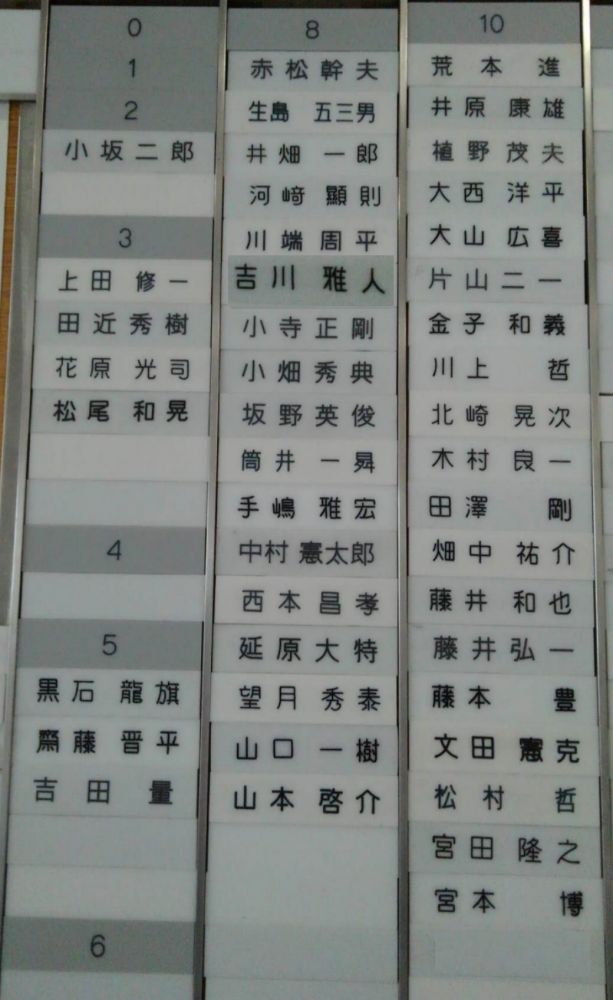 0
1
2
小坂二郎
3
上田修一
田近秀樹
花原光司
松尾和晃
4
5
黒石龍旗
齋藤晋平
吉田量
6
8
赤松幹夫
生島五三男
井畑一郎
河﨑顯則
川端周平
吉川雅人
小寺正剛
小畑秀典
坂野英俊
筒井一曻
手嶋雅宏
中村憲太郎
西本昌孝
延原大特
望月秀泰
山口一樹
山本啓介
10
荒本進
井原康雄
植野茂夫
大西洋平
大山広喜
片山二一
金子和義
川上哲
北崎晃次
木村良一
田澤剛
畑中祐介
藤井和也
藤井弘一
藤本豊
文田憲克
松村哲
宮田隆之
宮本博